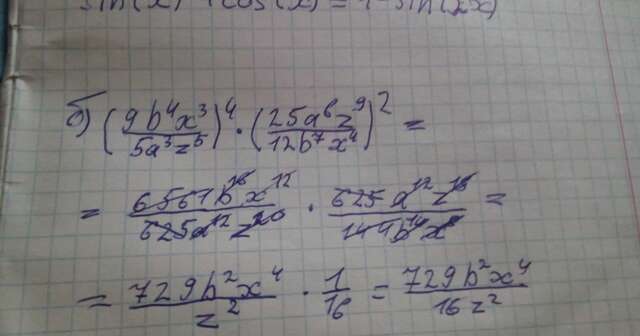 sin(x) + cos(x) = 1 - sin(2x)
б) (9b⁴x³/5a³z⁵)⁴ · (25a⁶z⁹/12b⁷x⁴)² =
= 6561b¹⁶x¹²/625a¹²z²⁰ · 625a¹²z¹⁸/144b¹⁴x⁸ =
= 729b²x⁴/z² · 1/16 = 729b²x⁴/16z²